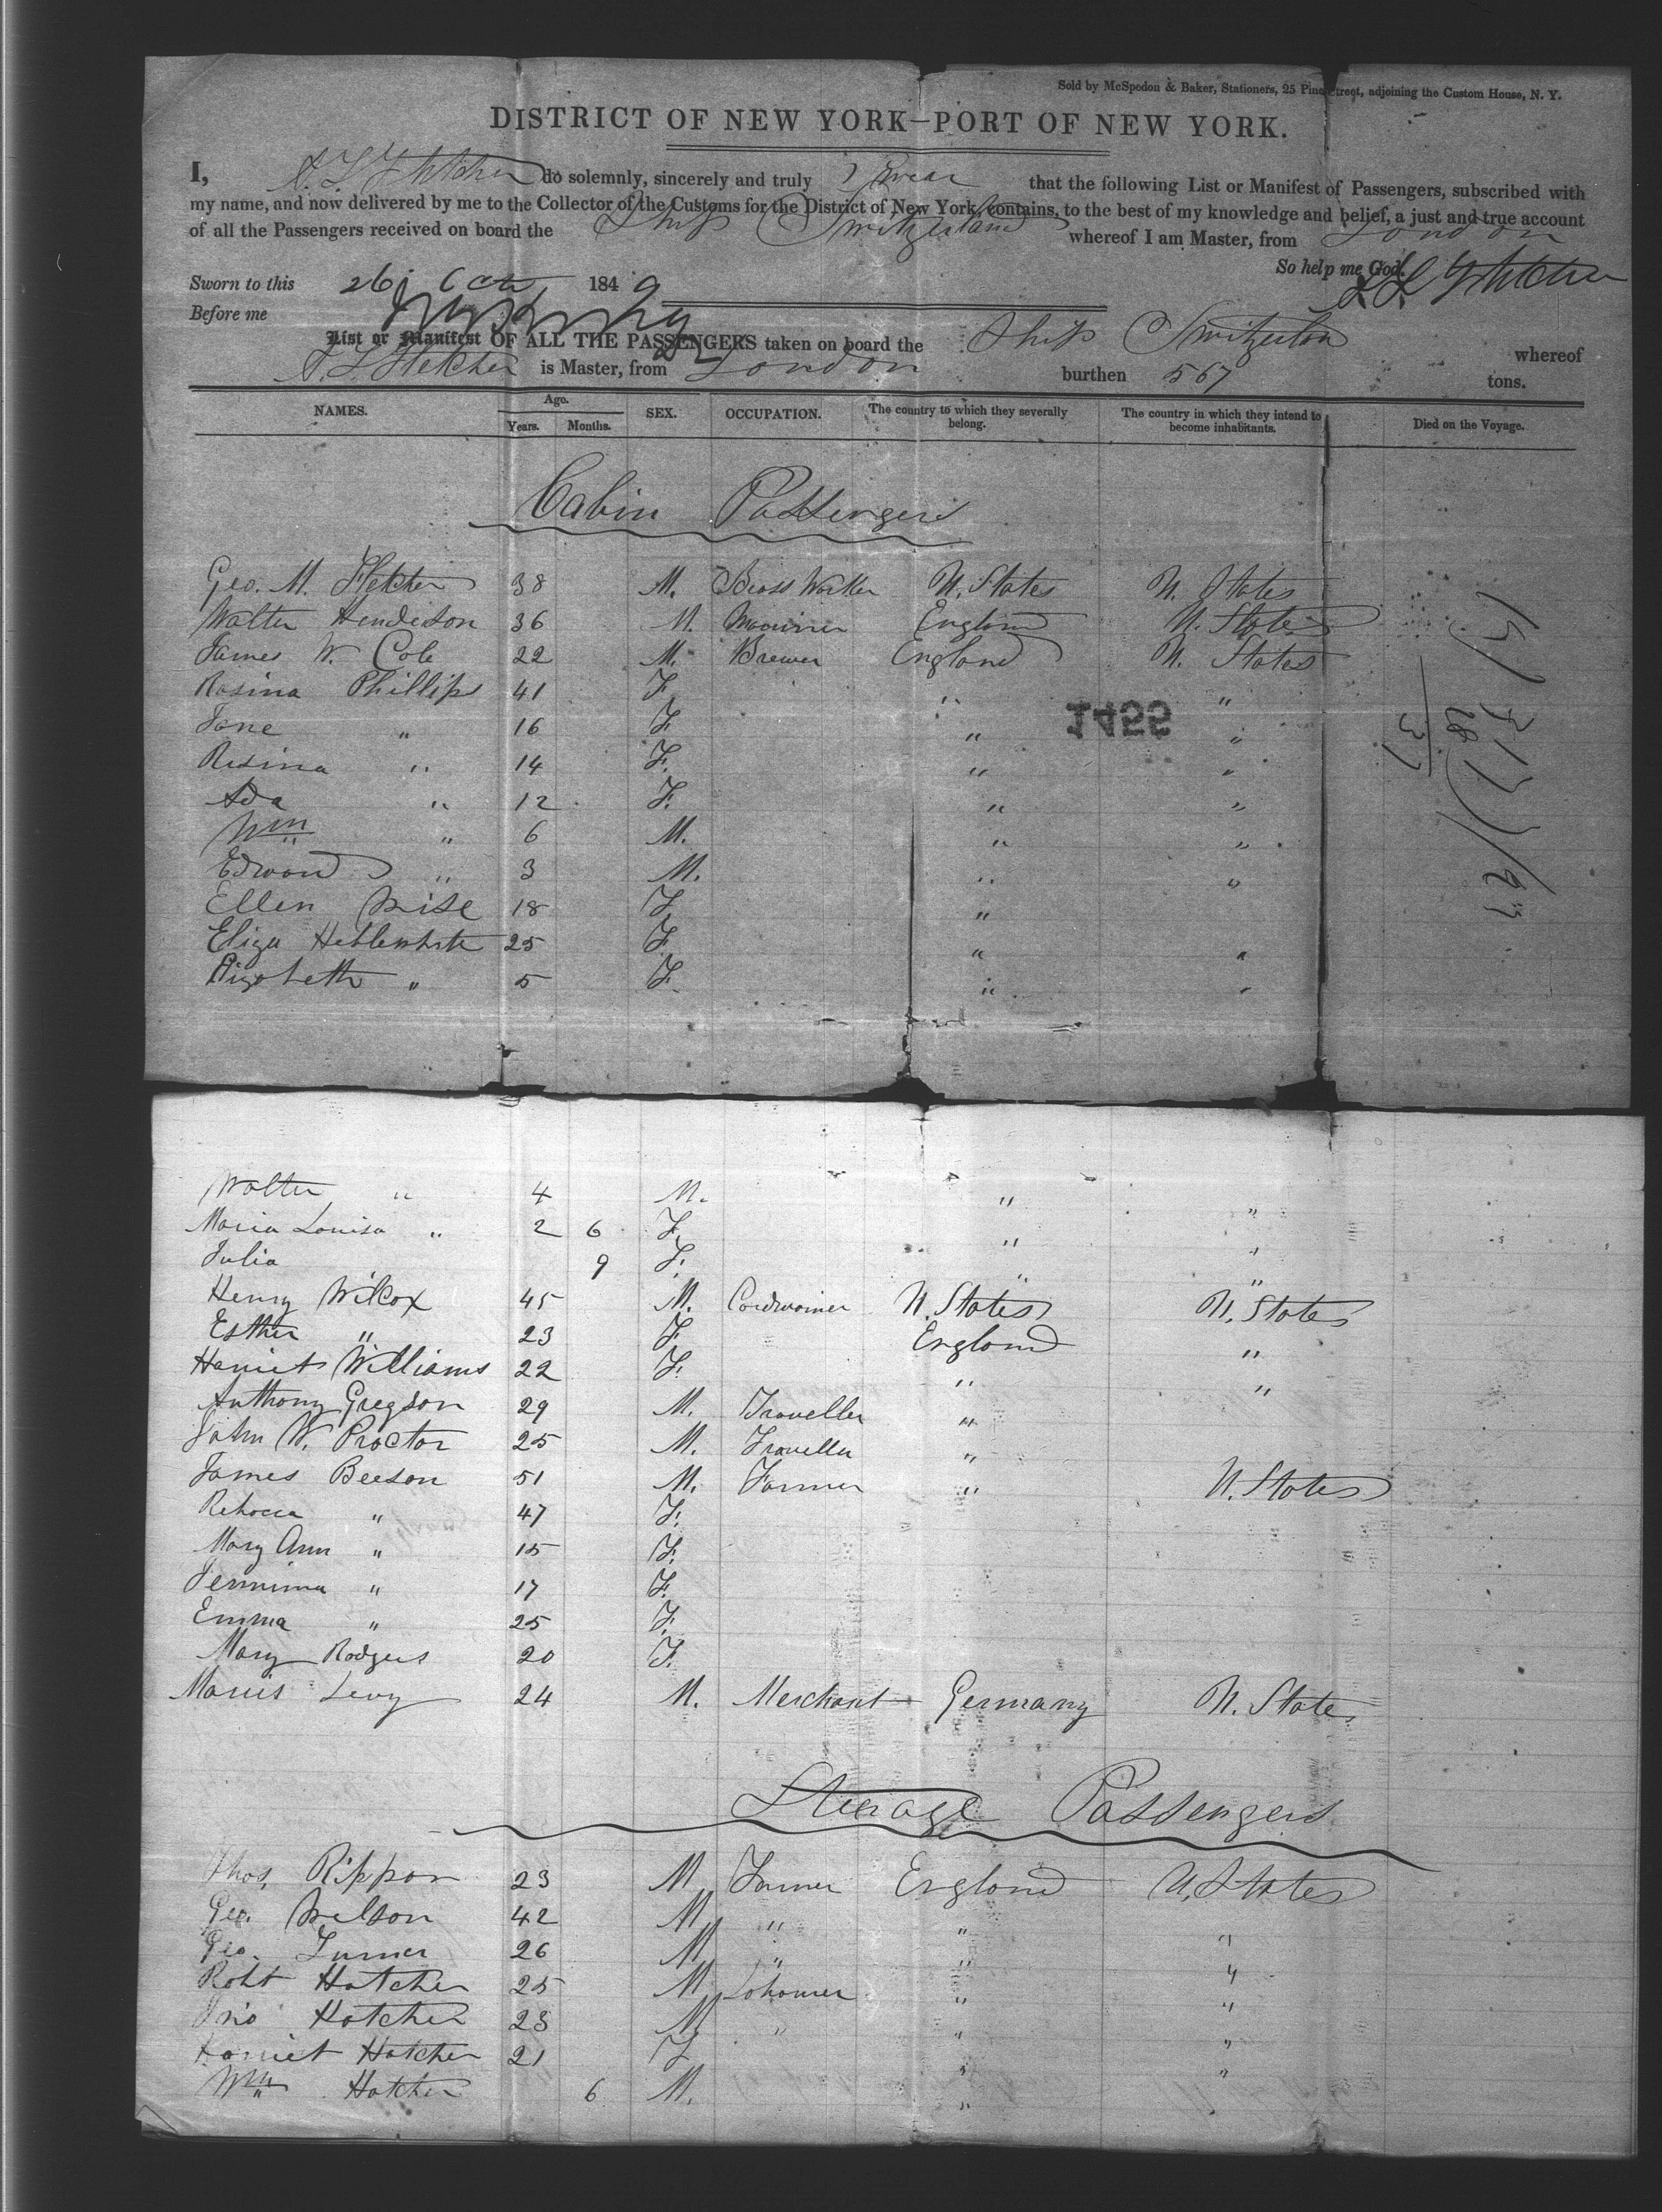 Sold by McSpedon & Baker, Stationers, 25 Pine Street, adjoining the Custom House, N. Y.
DISTRICT OF NEW YORK—PORT OF NEW YORK.
I, A. L. Fletcher do solemnly, sincerely and truly swear that the following List or Manifest of Passengers, subscribed with
my name, and now delivered by me to the Collector of the Customs for the District of New York, contains, to the best of my knowledge and belief, a just and true account
of all the Passengers received on board the Ship Switzerland whereof I am Master, from London
So help me God.
Sworn to this 26 Octr 1849 Fletcher
Before me
List or Manifest OF ALL THE PASSENGERS taken on board the Ship Switzerlan whereof
A. L. Fletcher is Master, from London burthen 567 tons.
NAMES. Age. Years. Months. SEX. OCCUPATION. The country to which they severally belong. The country in which they intend to become inhabitants. Died on the Voyage.
Cabin Passengers
Geo. M. Fletcher 38 M. Brass Worker U. States U. States
Walter Henderson 36 M. Mariner England U. States
James W. Cole 22 M. Brewer England U. States
Rosina Phillips 41 F. " "
Jane " 16 F. " "
Rosina " 14 F. " "
Ada " 12 F. " "
Wm " 6 M. " "
Edward " 3 M. " "
Ellen Wise 18 F. "
Eliza Hebblewhite 25 F. " "
Elizabeth " 5 F. " "
1455
Walter " 4 M. " "
Maria Louisa " 2 6 F. " "
Julia 9 F. " "
Henry Wilcox 45 M. Cordwainer U. States U. States
Esther " 23 F. England "
Harriet Williams 22 F. " "
Anthony Gregson 29 M. Traveller "
John W. Proctor 25 M. Traveller "
James Beeson 51 M. Farmer " U. States
Rebecca " 47 F.
Mary Ann " 15 F.
Jemmima " 17 F.
Emma " 25 F.
Mary Rodgers 20 F.
Morris Levy 24 M. Merchant Germany U. States
Steerage Passengers
Thos. Rippon 23 M Farmer England U. States
Geo. Wilson 42 M " " "
Geo. Turner 26 M " " "
Robt Hatcher 25 M Labourer " "
Jno Hatcher 23 M " " "
Harriet Hatcher 21 F " "
Wm Hatcher 6 M. "